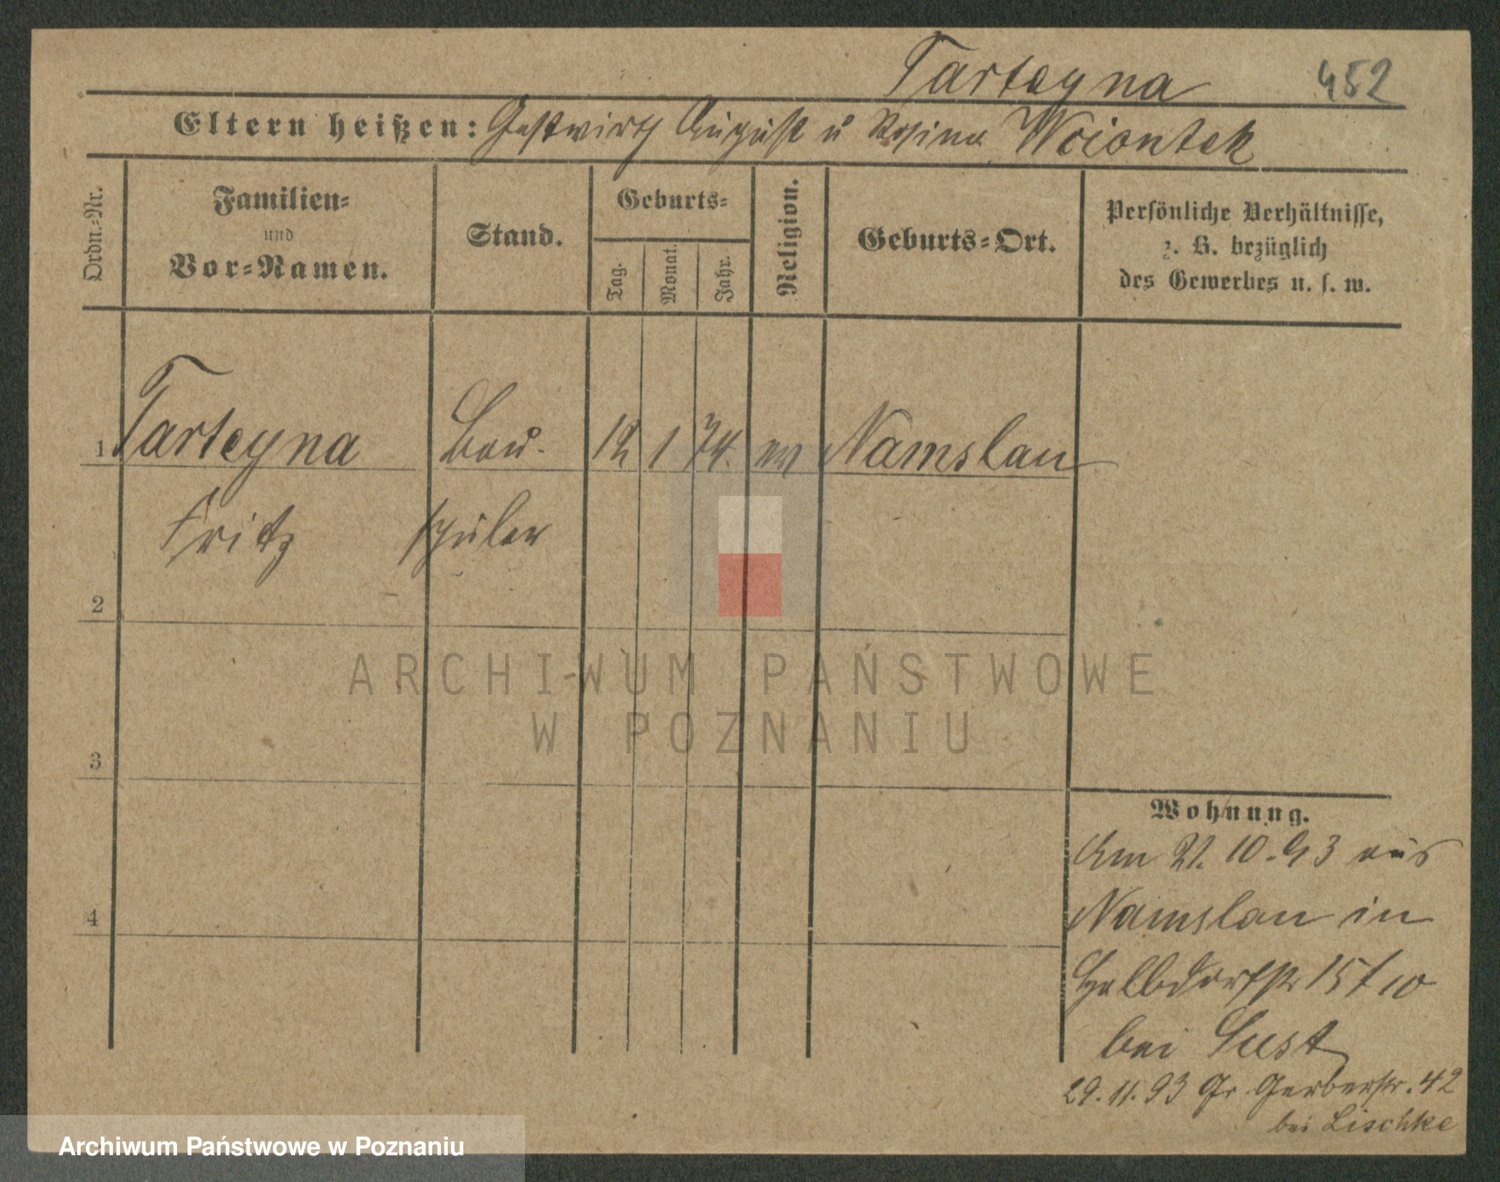 Tarteyna 452
Eltern heißen: Gastwirth August u Rosina Woiontek
Ordn.-Nr.
Familien-
und
Vor-Namen.
Stand.
Geburts-
Tag.
Monat.
Jahr.
Religion.
Geburts-Ort.
Persönliche Verhältnisse,
z. B. bezüglich
des Gewerbes u. s. w.
1 Tarteyna Bau- 12 1 74. ev Namslau
Fritz schüler
2
3
4
Wohnung.
Am 21.10.93 aus
Namslau in
Halbdorfstr 15 b
bei Lust
29.11.93 Gr Gerberstr. 42
bei Lischke
ARCHIWUM PAŃSTWOWE
W POZNANIU
Archiwum Państwowe w Poznaniu